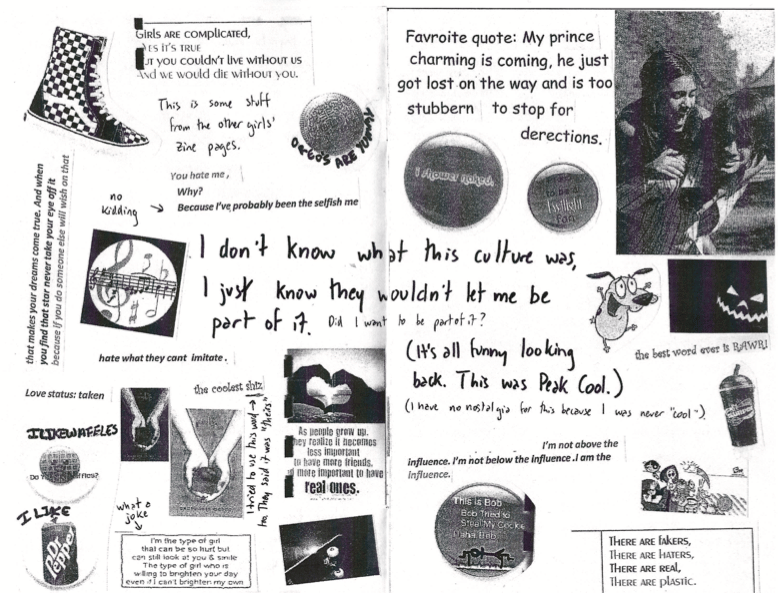 GIRLS ARE COMPLICATED,
YES IT'S TRUE
BUT YOU COULDN'T LIVE WITHOUT US
AND WE WOULD DIE WITHOUT YOU.
This is some stuff
from the other girls'
zine pages.
OREO'S ARE YUMMY
You hate me,
Why?
Because I've probably been the selfish me
no
kidding
that makes your dreams come true. And when
you find that star never take your eye off it
because if you do someone else will wish on that
I don't know what this culture was,
I just know they wouldn't let me be
part of it. Did I want to be part of it?
(It's all funny looking
back. This was Peak Cool.)
(I have no nostalgia for this because I was never "cool")
hate what they cant imitate.
Love status: taken
the coolest shiz
I tried to use this word
too. They said it was "theirs"
I LIKE WAFFLES
I LIKE
Dr Pepper
what a
joke
I'm the type of girl
that can be so hurt but
can still look at you & smile
The type of girl who is
willing to brighten your day
even if I can't brighten my own
As people grow up,
they realize it becomes
less important
to have more friends,
& more important to have
real ones.
Favroite quote: My prince
charming is coming, he just
got lost on the way and is too
stubbern to stop for
derections.
I shower naked.
to be a
Twilight
fan
the best word ever is RAWR!
I'm not above the
influence. I'm not below the influence .I am the
influence.
This is Bob
Bob Tried to
Steal My Cookie
Haha Bob
THERE ARE FAKERS,
THERE ARE HATERS,
THERE ARE REAL,
THERE ARE PLASTIC.